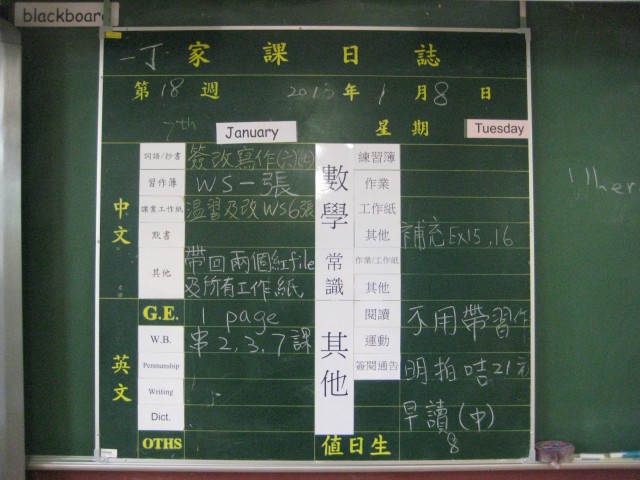 blackboard
一丁 家課日誌
第18週 2013年1月8日
7th January 星期 Tuesday
中文
詞語/抄書 簽改寫作(六)(七)
習作簿 WS一張
課業工作紙 温習及改WS6張
默書
其他 帶回兩個紅file
及所有工作紙
英文
G.E. 1 page
W.B. 串2,3,7課
Penmanship
Writing
Dict.
OTHS
數學
練習簿
作業
工作紙
其他 補充EX15,16
常識
作業/工作紙
其他
其他
閱讀 不用帶習作
運動
簽閱通告 明拍咭21元
早讀(中)
值日生 8